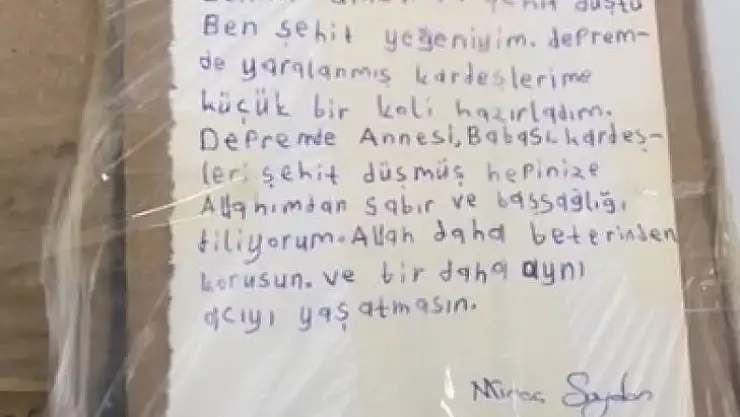 düştü
Ben şehit yeğeniyim. deprem-
de yaralanmış kardeşlerime
küçük bir koli hazırladım.
Depremde Annesi, Babası, kardeş-
leri şehit düşmüş hepinize
Allahımdan sabır ve başsağlığı
diliyorum. Allah daha beterinden
korusun. ve bir daha aynı
acıyı yaşatmasın.